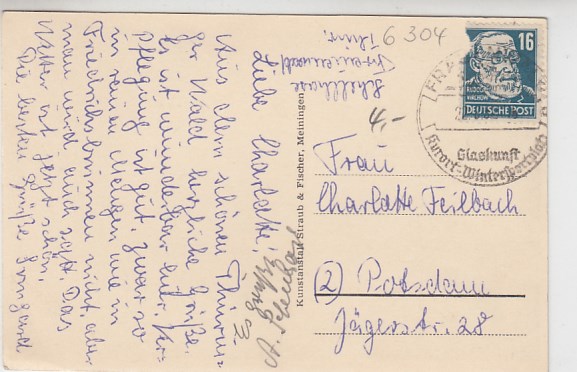 Liebe Charlotte!
Aus dem schönen Thürin-
ger Wald herzliche Grüße.
Es ist wunderbar hier, Ver-
pflegung ist gut, zwar so
in rauen Mengen wie in
Friedrichsbrunnen nicht, aber
man wird auch satt. Das
Wetter ist jetzt schön.
Die besten Grüße
Kunstanstalt Straub & Fischer, Meiningen
6 304
Thür.
4,-
16
DEUTSCHE POST
Glaskunst
Kurort-Wintersportplatz
Frau
Charlotte Feilbach
(2) Potsdam
Jägerstr. 28